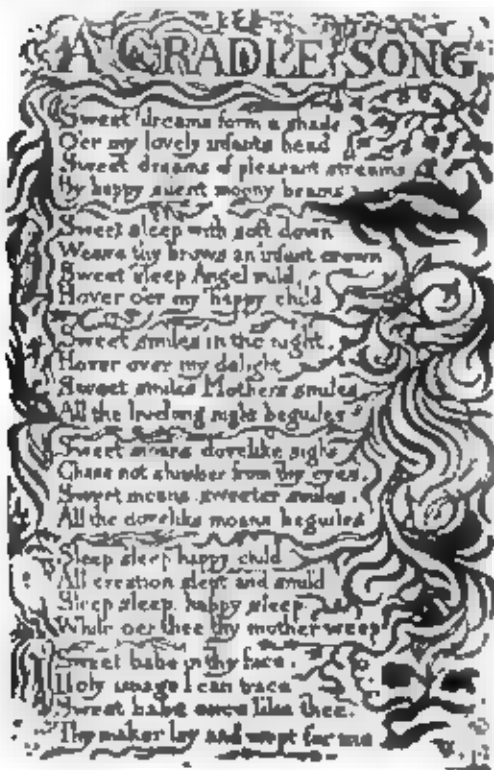 A CRADLE SONG
Sweet dreams form a shade
O'er my lovely infants head
Sweet dreams of pleasant streams
By happy silent moony beams
Sweet sleep with soft down
Weave thy brows an infant crown
Sweet sleep Angel mild
Hover o'er my happy child
Sweet smiles in the night
Hover over my delight
Sweet smiles Mothers smiles
All the livelong night beguiles
Sweet moans dovelike sighs
Chase not slumber from thy eyes
Sweet moans sweeter smiles
All the dovelike moans beguiles
Sleep sleep happy child
All creation slept and smil'd
Sleep sleep, happy sleep
While o'er thee thy mother weep
Sweet babe in thy face
Holy image I can trace
Sweet babe once like thee.
Thy maker lay and wept for me